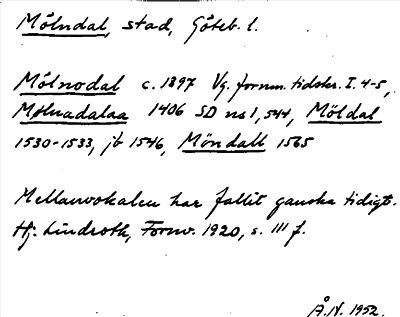 Mölndal, stad, Göteb. l.
Mölnodal c. 1397 Vg. fornm. tidskr. I. 4-5,
Mølnadalaa 1406 SD ns 1, 544, Möldal
1530-1533, jb 1546, Möndall 1565
Mellanvokalen har fallit ganska tidigt.
Hj. Lindroth, Fornv. 1920, s. 111 f.
Å.N. 1952.